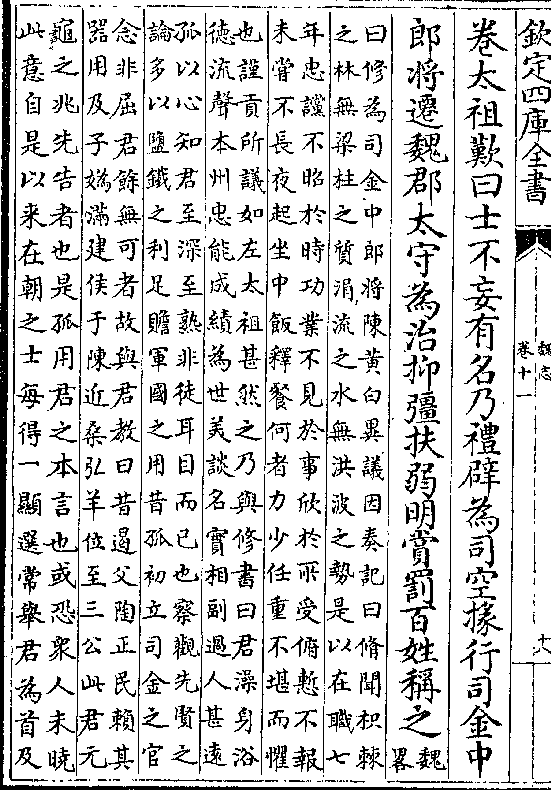 欽定四庫全書
魏志
卷十一
十八
卷太祖歎曰士不妄有名乃禮辟為司空掾行司金中
郎將遷魏郡太守為治抑彊扶弱明賞罰百姓稱之
魏
畧
曰修為司金中郎將陳黄白異議因奏記曰脩聞枳棘
之林無梁柱之質涓流之水無洪波之勢是以在職七
年忠讜不昭於時功業不見於事欣於所受俯慙不報
未嘗不長夜起坐中飯釋餐何者力少任重不堪而懼
也謹貢所議如左太祖甚然之乃與修書曰君澡身浴
徳流聲本州忠能成績為世美談名實相副過人甚遠
孤以心知君至深至熟非徒耳目而已也察觀先賢之
論多以鹽鐵之利足贍軍國之用昔孤初立司金之官
念非屈君餘無可者故與君教曰昔遏父陶正民賴其
器用及子嬀滿建侯于陳近桑弘羊位至三公此君元
龜之兆先告者也是孤用君之本言也或恐衆人未曉
此意自是以来在朝之士每得一顯選常舉君為首及